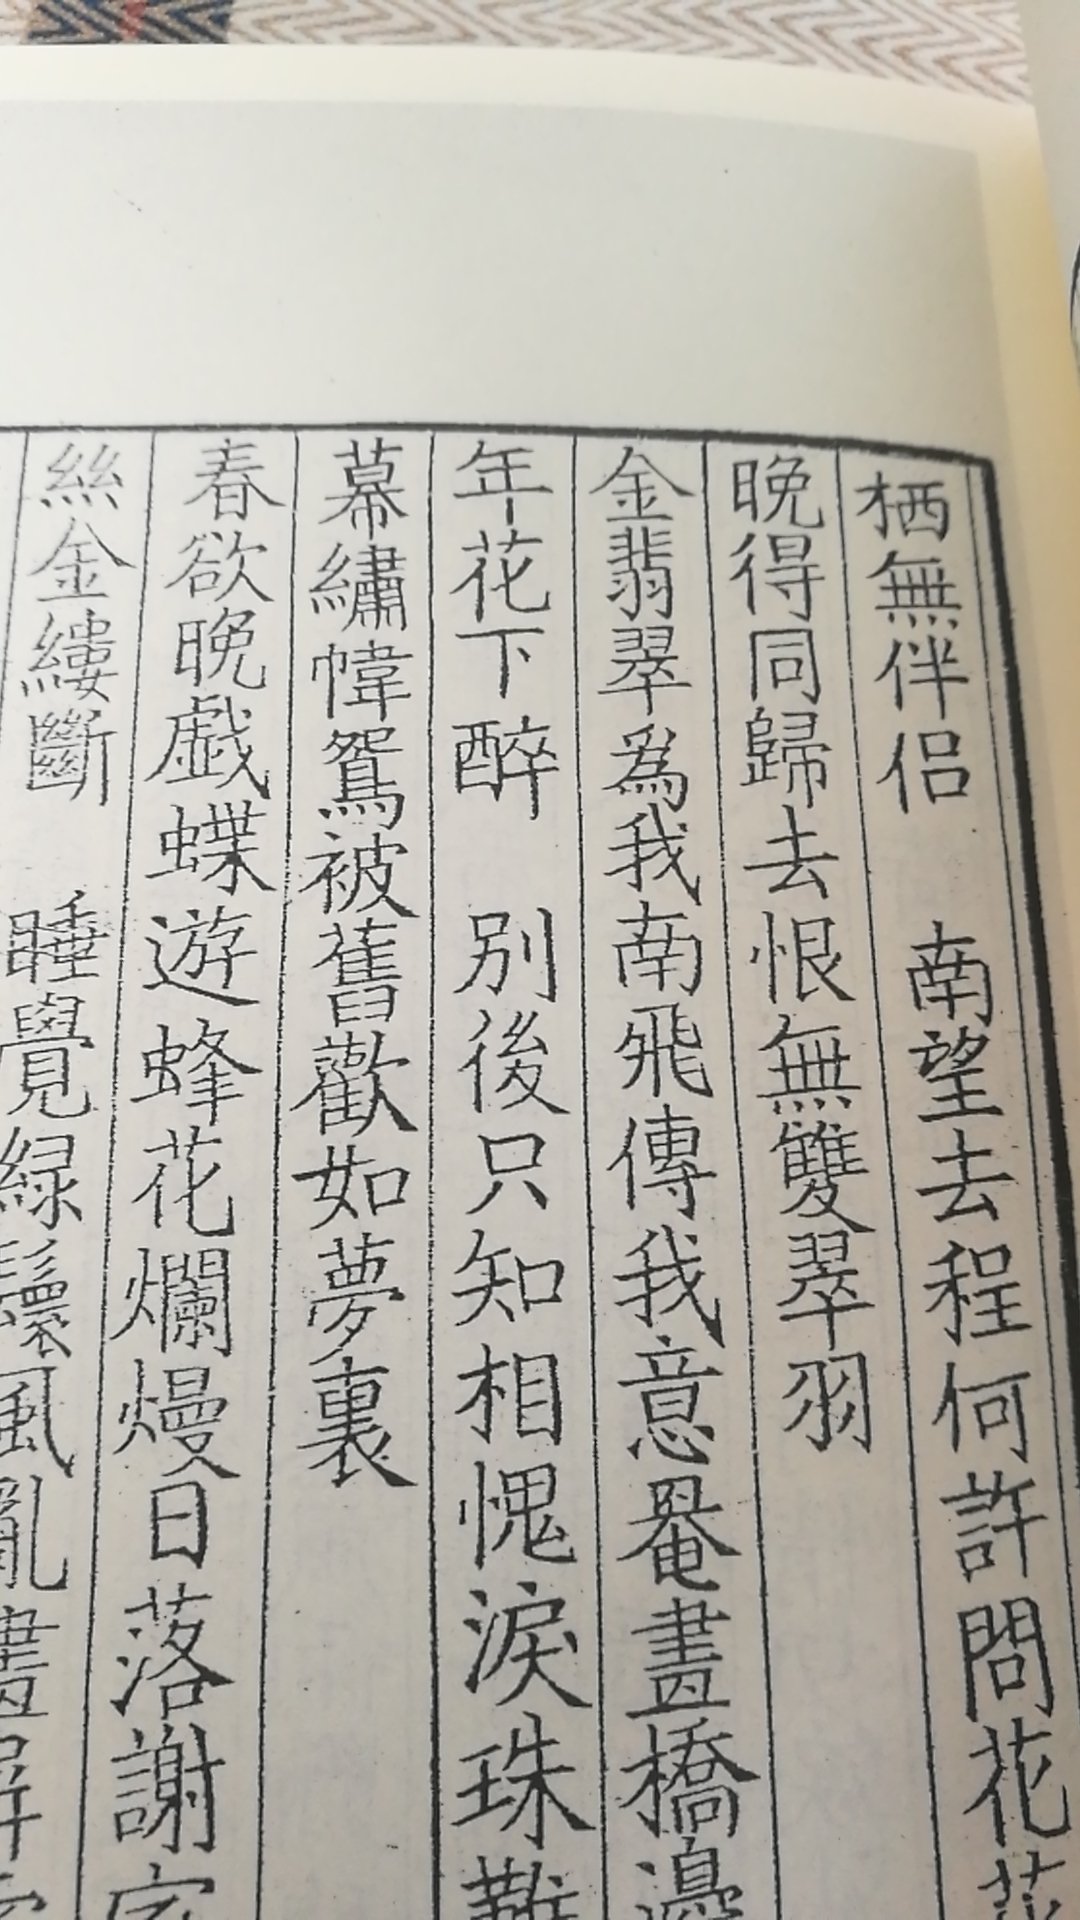 栖無伴侣　南望去程何許問花
晚得同歸去恨無雙翠羽
金翡翠為我南飛傳我意罨畫橋邊
年花下醉　别後只知相愧淚珠難
幕繡幃鴛被舊歡如夢裏
春欲晚戲蝶遊蜂花爛熳日落謝
絲金縷斷　睡覺緑鬟風亂畫屏